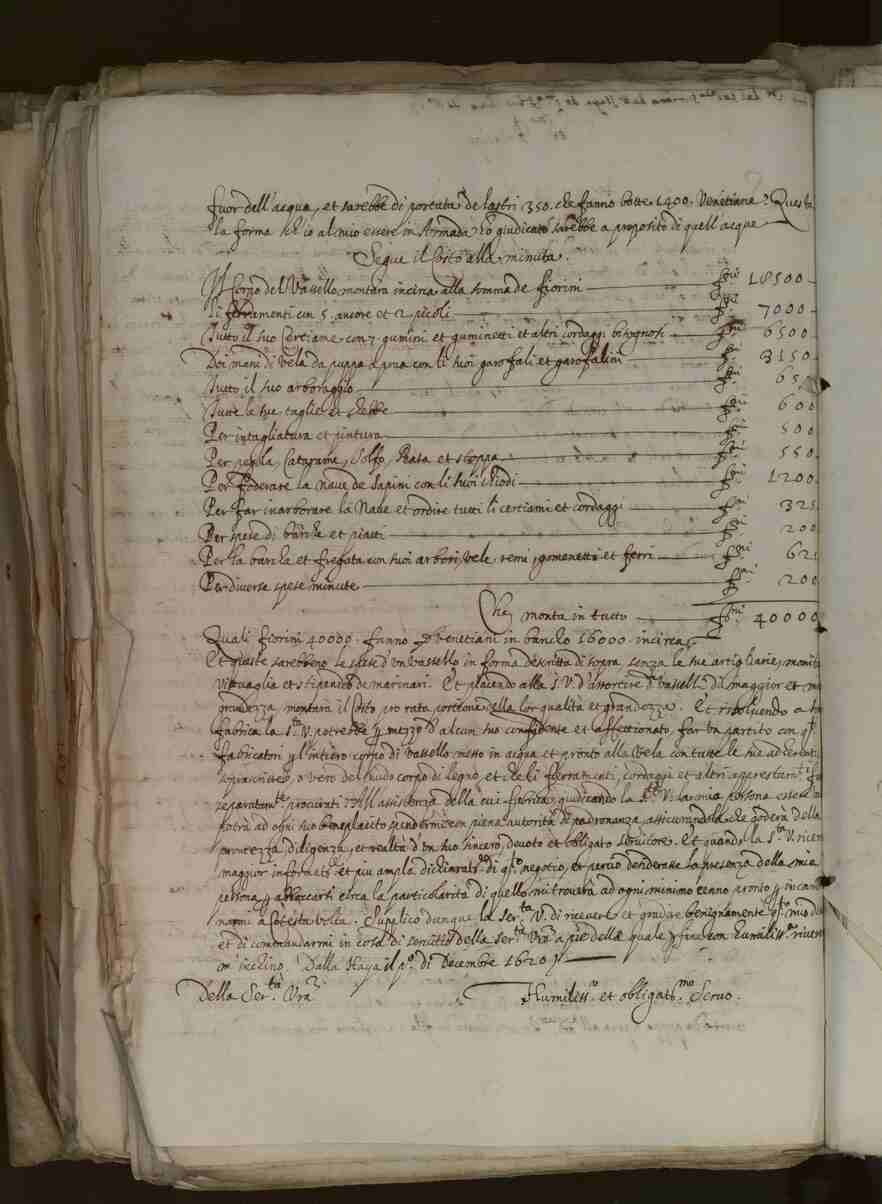 fuor dell'acqua, et sarebbe di portata de lastri 350. che fanno botte 1400. Venetiane. Questa
la forma ch'io al mio essere in Armada ho giudicato sarebbe a proposito di quell'acque
Segue il Costo alla minuta.
Il Corpo del Vassello montarà incirca alla somma de fiorini — fni 18500
Li ferramenti con 5. ancore et 2 picoli — fni 7000
Tutto il suo Certiame con 7 gumini et guminetti et altri cordaggi bisognosi — fni 6500
Doi mani di vela da puppa a prua con li suoi garofali et garofalini — fni 3150
Tutto il suo arboraggio — fni 65
Tutte le sue taglie et — fni 600
Per intagliatura et pintura — fni 500
Per pegola, Catarama, Solfo, Rasa et stoppa — fni 550
Per foderare la Nave de sapini con li suoi chiodi — fni 1200
Per far inarborare la Nave et ordire tutti li certiami et cordaggi — fni 325
Per spese di barche et piatti — fni 200
Per la barcha et fregata con suoi arbori, vele, remi, gomenetti et ferri — fni 62
Per diverse spese minute — fni 200
Che monta in tutto — fni 40000
Quali fiorini 40000. fanno Venetiani in bancho 16000 incirca
Et queste sarebbeno le spese d'un vassello in forma descritta di sopra, senza le sue artigliarie, monit
vittuaglia et stipendio de marinari. Et placendo alla S. V. d'assortire vasselli di maggior et
grandezza, montarà il Costo pro rata portione della lor qualità et grandezza. Et risolvendo a
fabrica la S.tà V. potrebbe p mezzo d'alcun suo confidente et affettionato, far un partito con
fabricatori p l'intiero corpo di vassello messo in acqua et pronto alla vela con tutte le sue
soprascritte, o vero del nudo corpo di legno, et che li ferramenti, cordaggi et altri
separatam.te procurati. All'assistenza della cui fabrica, giudicando la S.tà V. la mia persona essere
potrà ad ogni suo beneplacito spendermi con piena autorità di padronanza, assicurandola che goderà della
prontezza, diligenza, et realtà d'un suo sincero, devoto et obligato servitore. Et quando la S.tà V.
maggior informat.ne et piu ampla dichiarat.ne di q.to negotio, et percio desiderasse la presenza della mia
persona, p abboccarsi circa la particolarità di quello, mi troverà ad ogni minimo cenno pronto p incam
narmi a Cotesta volta. Supplico dunque la Ser.tà V. di ricever et gradire benignamente q.to mio
et di commandarmi in cosa di servitio della Ser.tà Vra a pie della quale p fine con humiliss.a
m'inchino. Dalla Haya il p.o di Decembre 1620
Della Ser.tà Vra
Humiliss.o et obligatis.mo Servo.